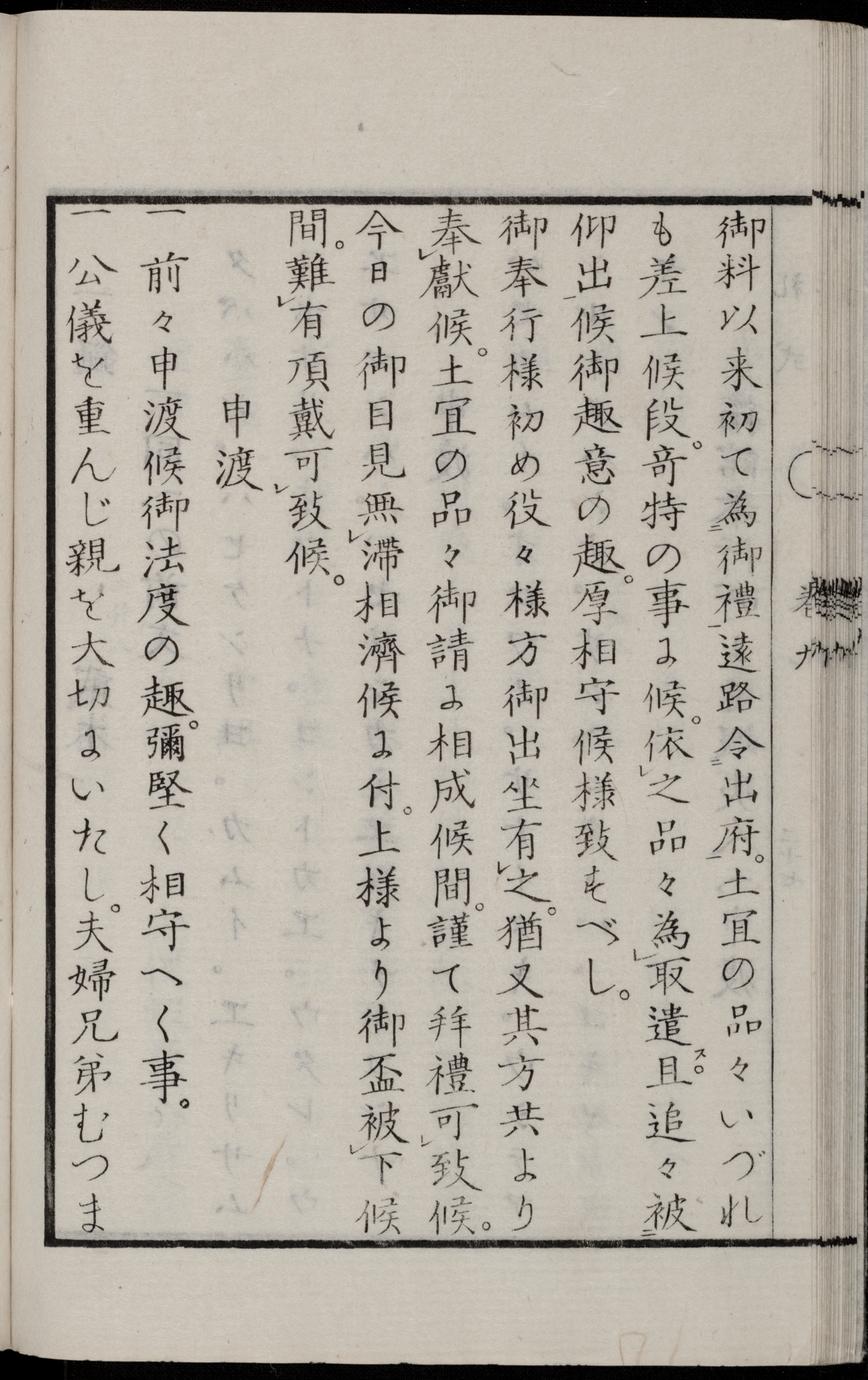 御料以来初て為御禮遠路令出府。土冝の品々いづれ
も差上候段。竒特の事に候。依之品々為取遣ス。且追々被
仰出候御趣意の趣。厚相守候様致すべし。
御奉行様初め役々様方御出坐有之。猶又其方共より
奉獻候。土冝の品々御請に相成候間。謹て拜禮可致候。
今日の御目見無滞相濟候に付。上様より御盃被下候
間。難有頂戴可致候。
申渡
一前々申渡候御法度の趣。彌堅く相守へく事。
一公儀を重んじ親を大切にいたし。夫婦兄弟むつま